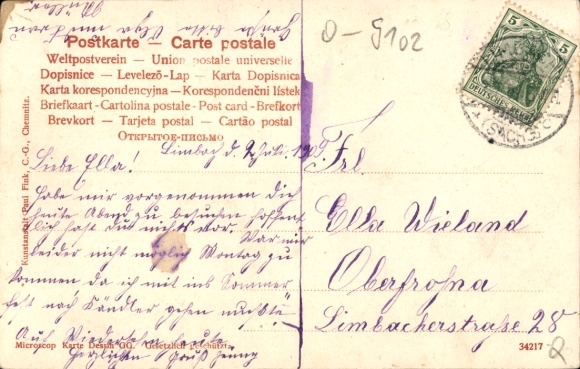 Postkarte – Carte postale
Weltpostverein – Union postale universelle
Dopisnice – Levelező-Lap – Karta Dopisnica
Karta korespondencyjna – Korespondenční lístek
Briefkaart - Cartolina postale - Post card - Brefkort
Brevkort – Tarjeta postal – Cartão postal
ОТКРЫТОЕ-ПИСЬМО
Limbach d.
Liebe Ella!
Habe mir vorgenommen dich
heute Abend zu besuchen hoffent
lich hast du nichts vor. War mir
leider nicht möglich Montag zu
kommen da ich mit ins Sommer
fest nach Kändler gehen mußte
Auf Wiedersehn heute
Herzlichen Gruß Jenny
Kunstanstalt Paul Fink, C.-G., Chemnitz.
Microscop Karte Dessin GG. Gesetzlich geschützt.
0-9102
5 5
DEUTSCHES REICH
(SACHS)
Frl.
Ella Wieland
Oberfrohna
Limbacherstraße 28
34217